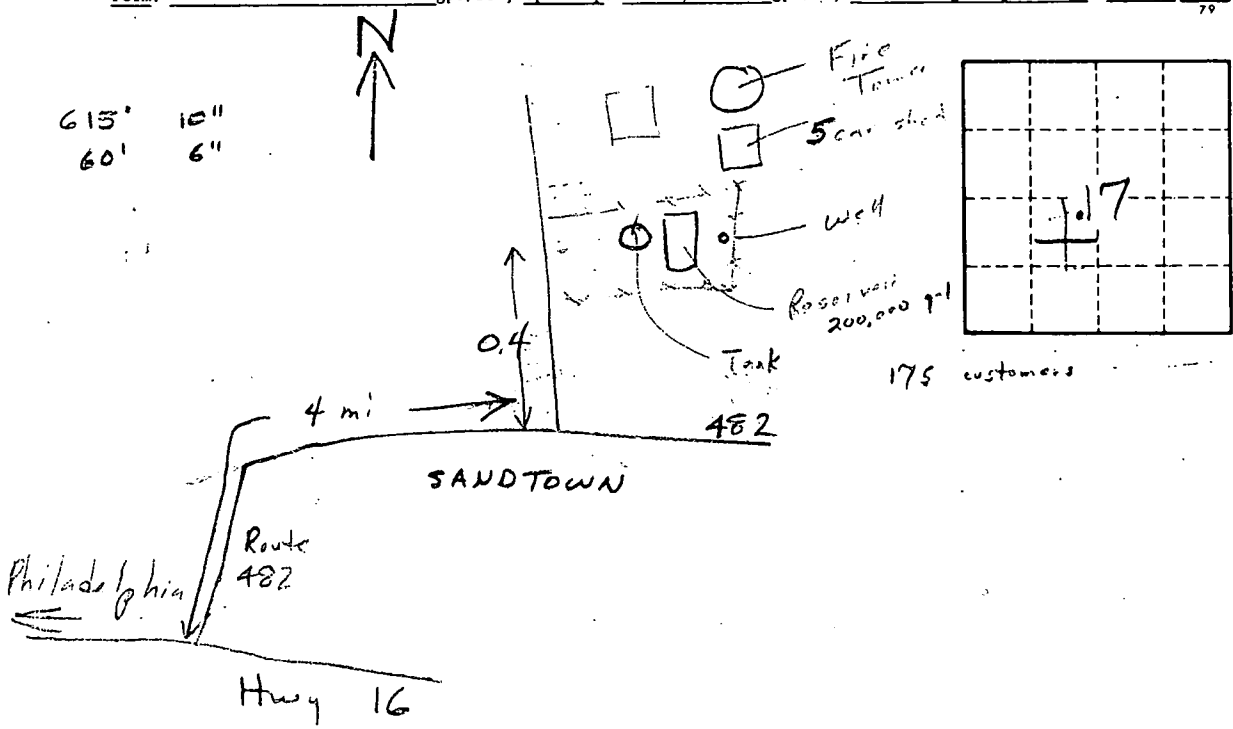 79
N
615' 10"
60' 6"
Fire
Tower
5 car shed
Well
.17
Reservoir
200,000 gal
Tank
175 customers
0.4
4 mi
482
SANDTOWN
Route
482
Philadelphia
Hwy 16